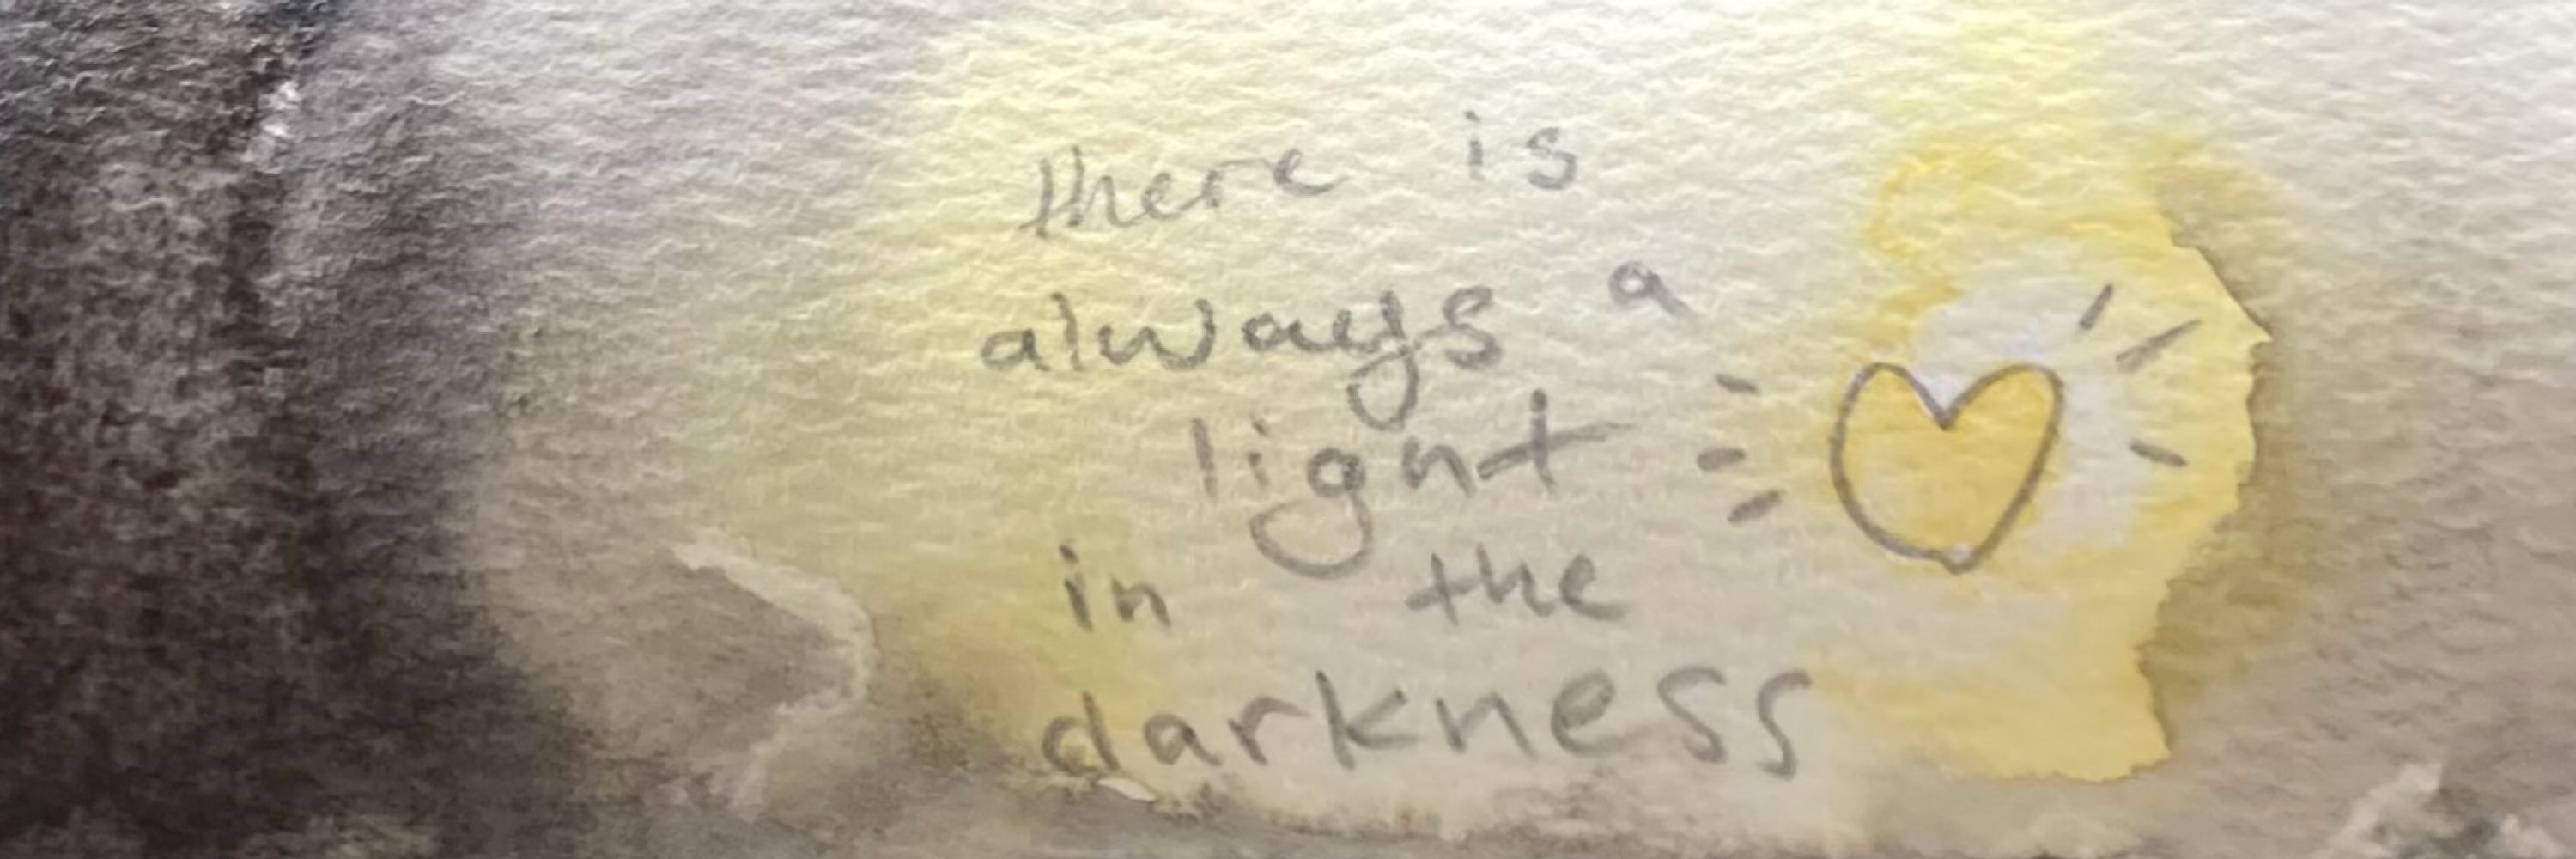 there is
always a
light
in the
darkness